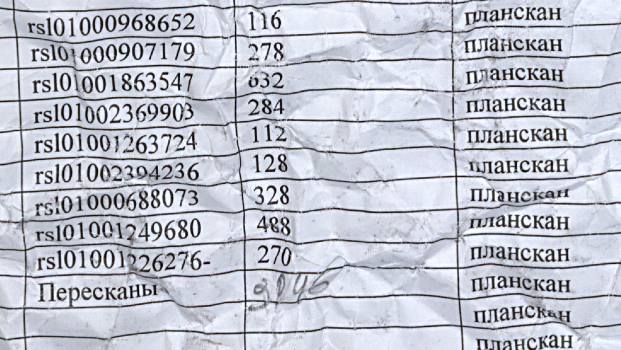 rsl01000968652 116 планскан
rsl01000907179 278 планскан
rsl01001863547 632 планскан
rsl01002369903 284 планскан
rsl01001263724 112 планскан
rsl01002394236 128 планскан
rsl01000688073 328 планскан
rsl01001249680 488 планскан
rsl01001226276- 270 планскан
Пересканы планскан
планскан
планскан